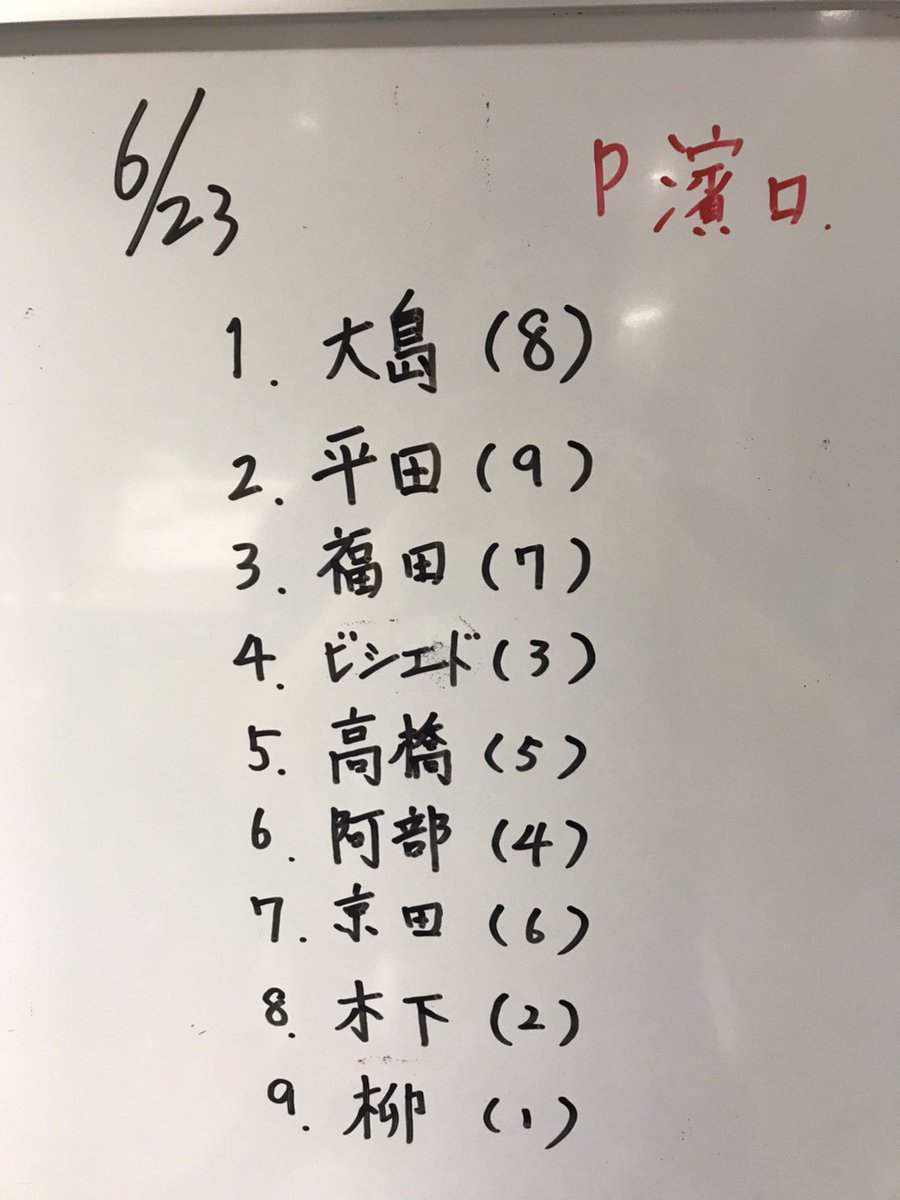 6/23
P 濱口.
1. 大島 (8)
2. 平田 (9)
3. 福田 (7)
4. ビシエド (3)
5. 高橋 (5)
6. 阿部 (4)
7. 京田 (6)
8. 木下 (2)
9. 柳 (1)